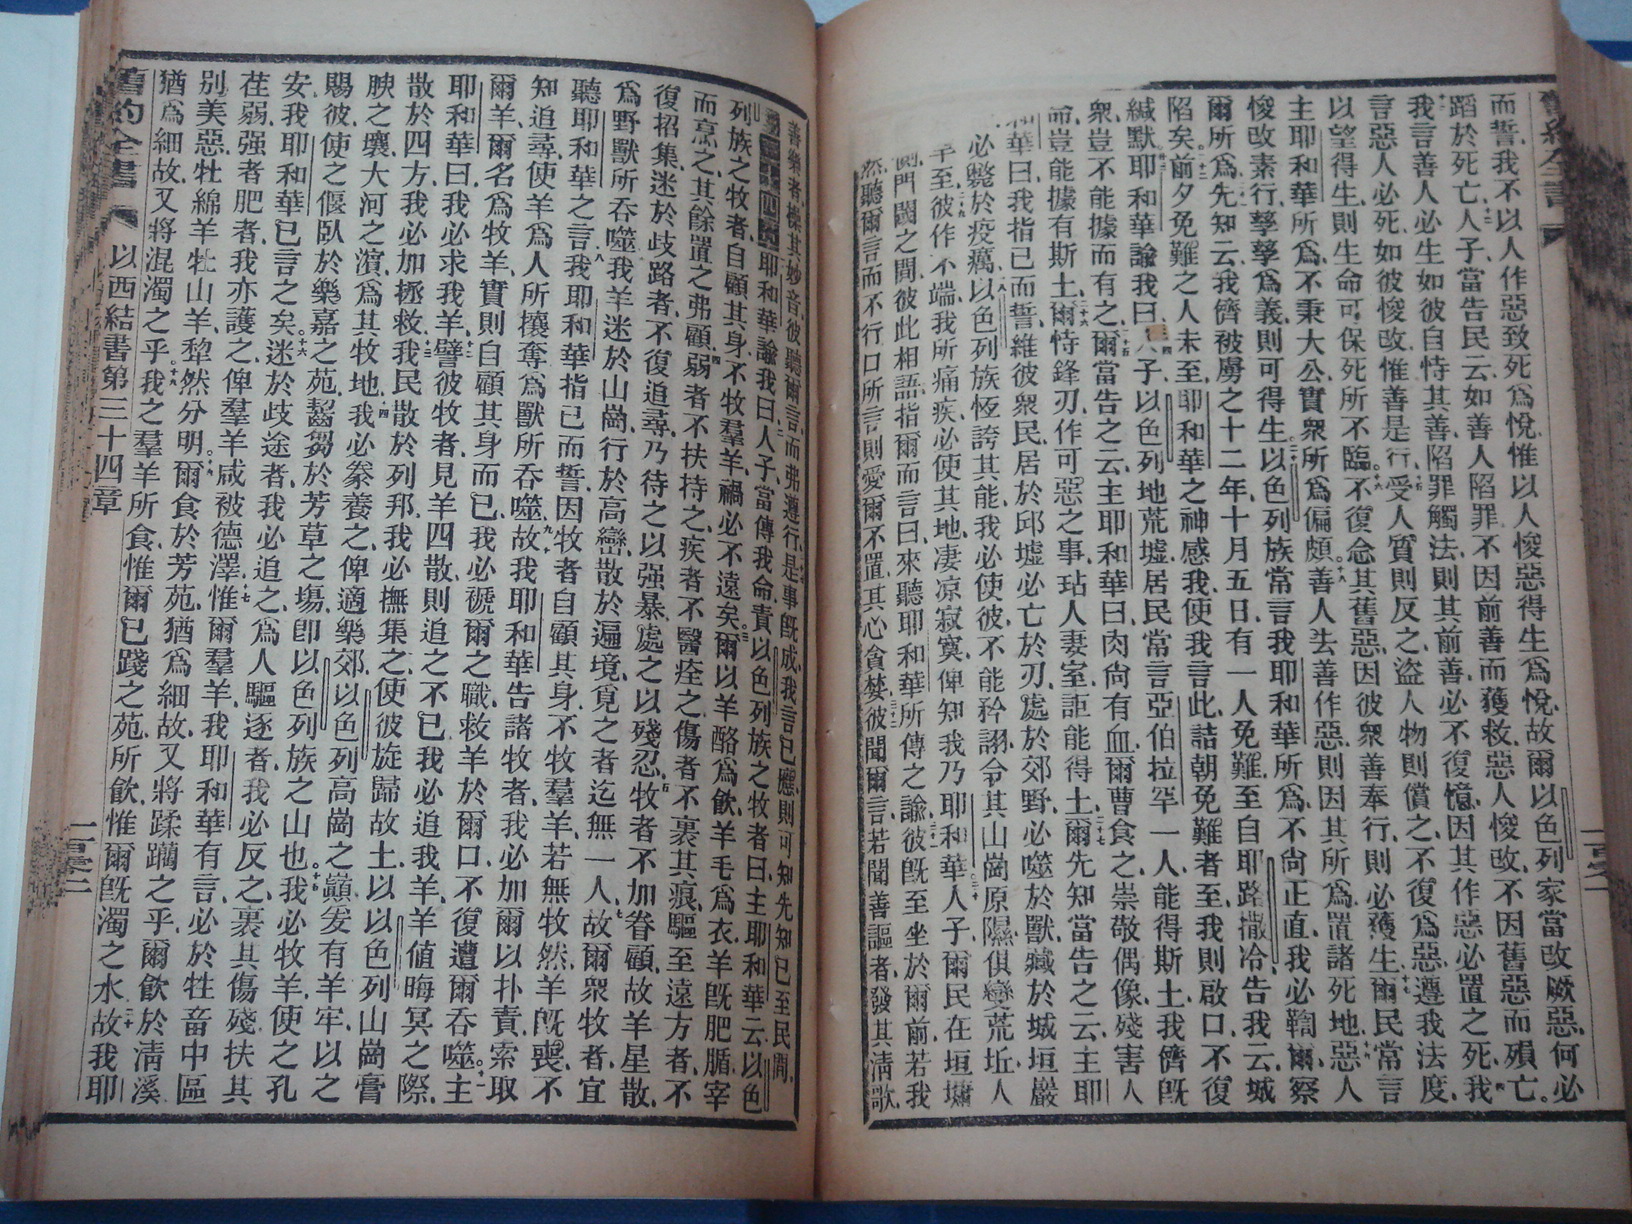 而誓、我不以人作惡致死爲悅、惟以人悛惡得生爲悅、故爾以色列家當改厥惡、何必
蹈於死亡、人子當告民云、如善人陷罪、不因前善而獲救、惡人悛改、不因舊惡而殞亡。我
我言善人必生、如彼自恃其善、陷罪觸法、則其前善、必不復憶、因其作惡、必置之死、我
言惡人必死、如彼悛改、惟善是行、受人質則反之、盜人物則償之、不復爲惡、遵我法度、
以望得生、則生命可保、死所不臨。不復念其舊惡、因彼衆善奉行、則必獲生、爾民常言
主耶和華所爲、不秉大公、實衆所爲偏頗、善人去善作惡、則因其所爲、置諸死地、惡人
悛改素行、孳孳爲義、則可得生、以色列族常言、我耶和華所爲、不尙正直、我必鞫爾、察
爾所爲、先知云、我儕被虜之十二年、十月五日、有一人免難、至自耶路撒冷、告我云、城
陷矣、前夕免難之人未至、耶和華之神感我、使我言、此詰朝免難者至、我則啟口、不復
緘默、耶和華諭我曰、人子、以色列地荒墟、居民常言、亞伯拉罕一人、能得斯土、我儕旣
衆、豈不能據而有之、爾當告之云、主耶和華曰、肉尙有血、爾曹食之、崇敬偶像、殘害人
命、豈能據有斯土、爾恃鋒刃、作可惡之事、玷人妻室、詎能得土、爾先知當告之云、主耶
和華曰、我指己而誓、維彼衆民、居於邱墟、必亡於刃、處於郊野、必噬於獸、藏於城垣巖
必斃於疫癘、以色列族恆誇其能、我必使彼、不能矜詡、令其山崗原隰、俱變荒坵、人
至彼作不端、我所痛疾、必使其地、凄凉寂寞、俾知我乃耶和華、人子、爾民在垣墉
門閾之間、彼此相語、指爾而言曰、來聽耶和華所傳之諭、彼旣至、坐於爾前、若我
然、聽爾言而不行、口所言則愛爾不置、其心貪婪、彼聞爾言、若聞善謳者、發其淸歌、
善樂者、操其妙音、彼聽爾言、而弗遵行、是事旣成、我言已應、則可知先知已至民間、
耶和華諭我曰、人子、當傳我命、責以色列族之牧者曰、主耶和華云、以色
列族之牧者、自顧其身、不牧羣羊、禍必不遠矣。爾以羊酪爲飮、羊毛爲衣、羊旣肥腯、宰
而烹之、其餘置之弗顧、弱者不扶持之、疾者不醫痊之、傷者不裹其痕、驅至遠方者、不
復招集、迷於歧路者、不復追尋、乃待之以强暴、處之以殘忍、牧者不加眷顧、故羊星散、
爲野獸所吞噬、我羊迷於山崗、行於高巒、散於遍境、覓之者迄無一人、故爾衆牧者、宜
聽耶和華之言、我耶和華指已而誓、因牧者自顧其身、不牧羣羊、若無牧然、羊旣喪、不
知追尋、使羊爲人所攘奪、爲獸所吞噬、故我耶和華告諸牧者、我必加爾以扑責、索取
爾羊、爾名爲牧羊、實則自顧其身而已、我必褫爾之職、救羊於爾口、不復遭爾吞噬。主
耶和華曰、我必求我羊、譬彼牧者、見羊四散、則追之不已、我必追我羊、羊值晦冥之際、
散於四方、我必加拯救、我民散於列邦、我必撫集之、使彼旋歸故土、以以色列山崗膏
腴之壤、大河之濱、爲其牧地、我必豢養之、俾適樂郊、以色列高崗之巔、爰有羊牢、以之
賜彼、使之偃臥於樂嘉之苑、齧芻於芳草之塲、卽以色列族之山也、我必牧羊、使之孔
安、我耶和華已言之矣、迷於歧途者、我必追之、爲人驅逐者、我必反之、裹其傷殘、扶其
荏弱、强者肥者、我亦護之、俾羣羊咸被德澤、惟爾羣羊、我耶和華有言、必於牲畜中、區
別美惡、牡綿羊、牡山羊、犂然分明、爾食於芳苑、猶爲細故、又將蹂躪之乎、爾飮於淸溪、
猶爲細故、又將混濁之乎、我之羣羊所食、惟爾已踐之苑、所飮惟爾旣濁之水、故我耶
舊約全書
以西結書第三十四章